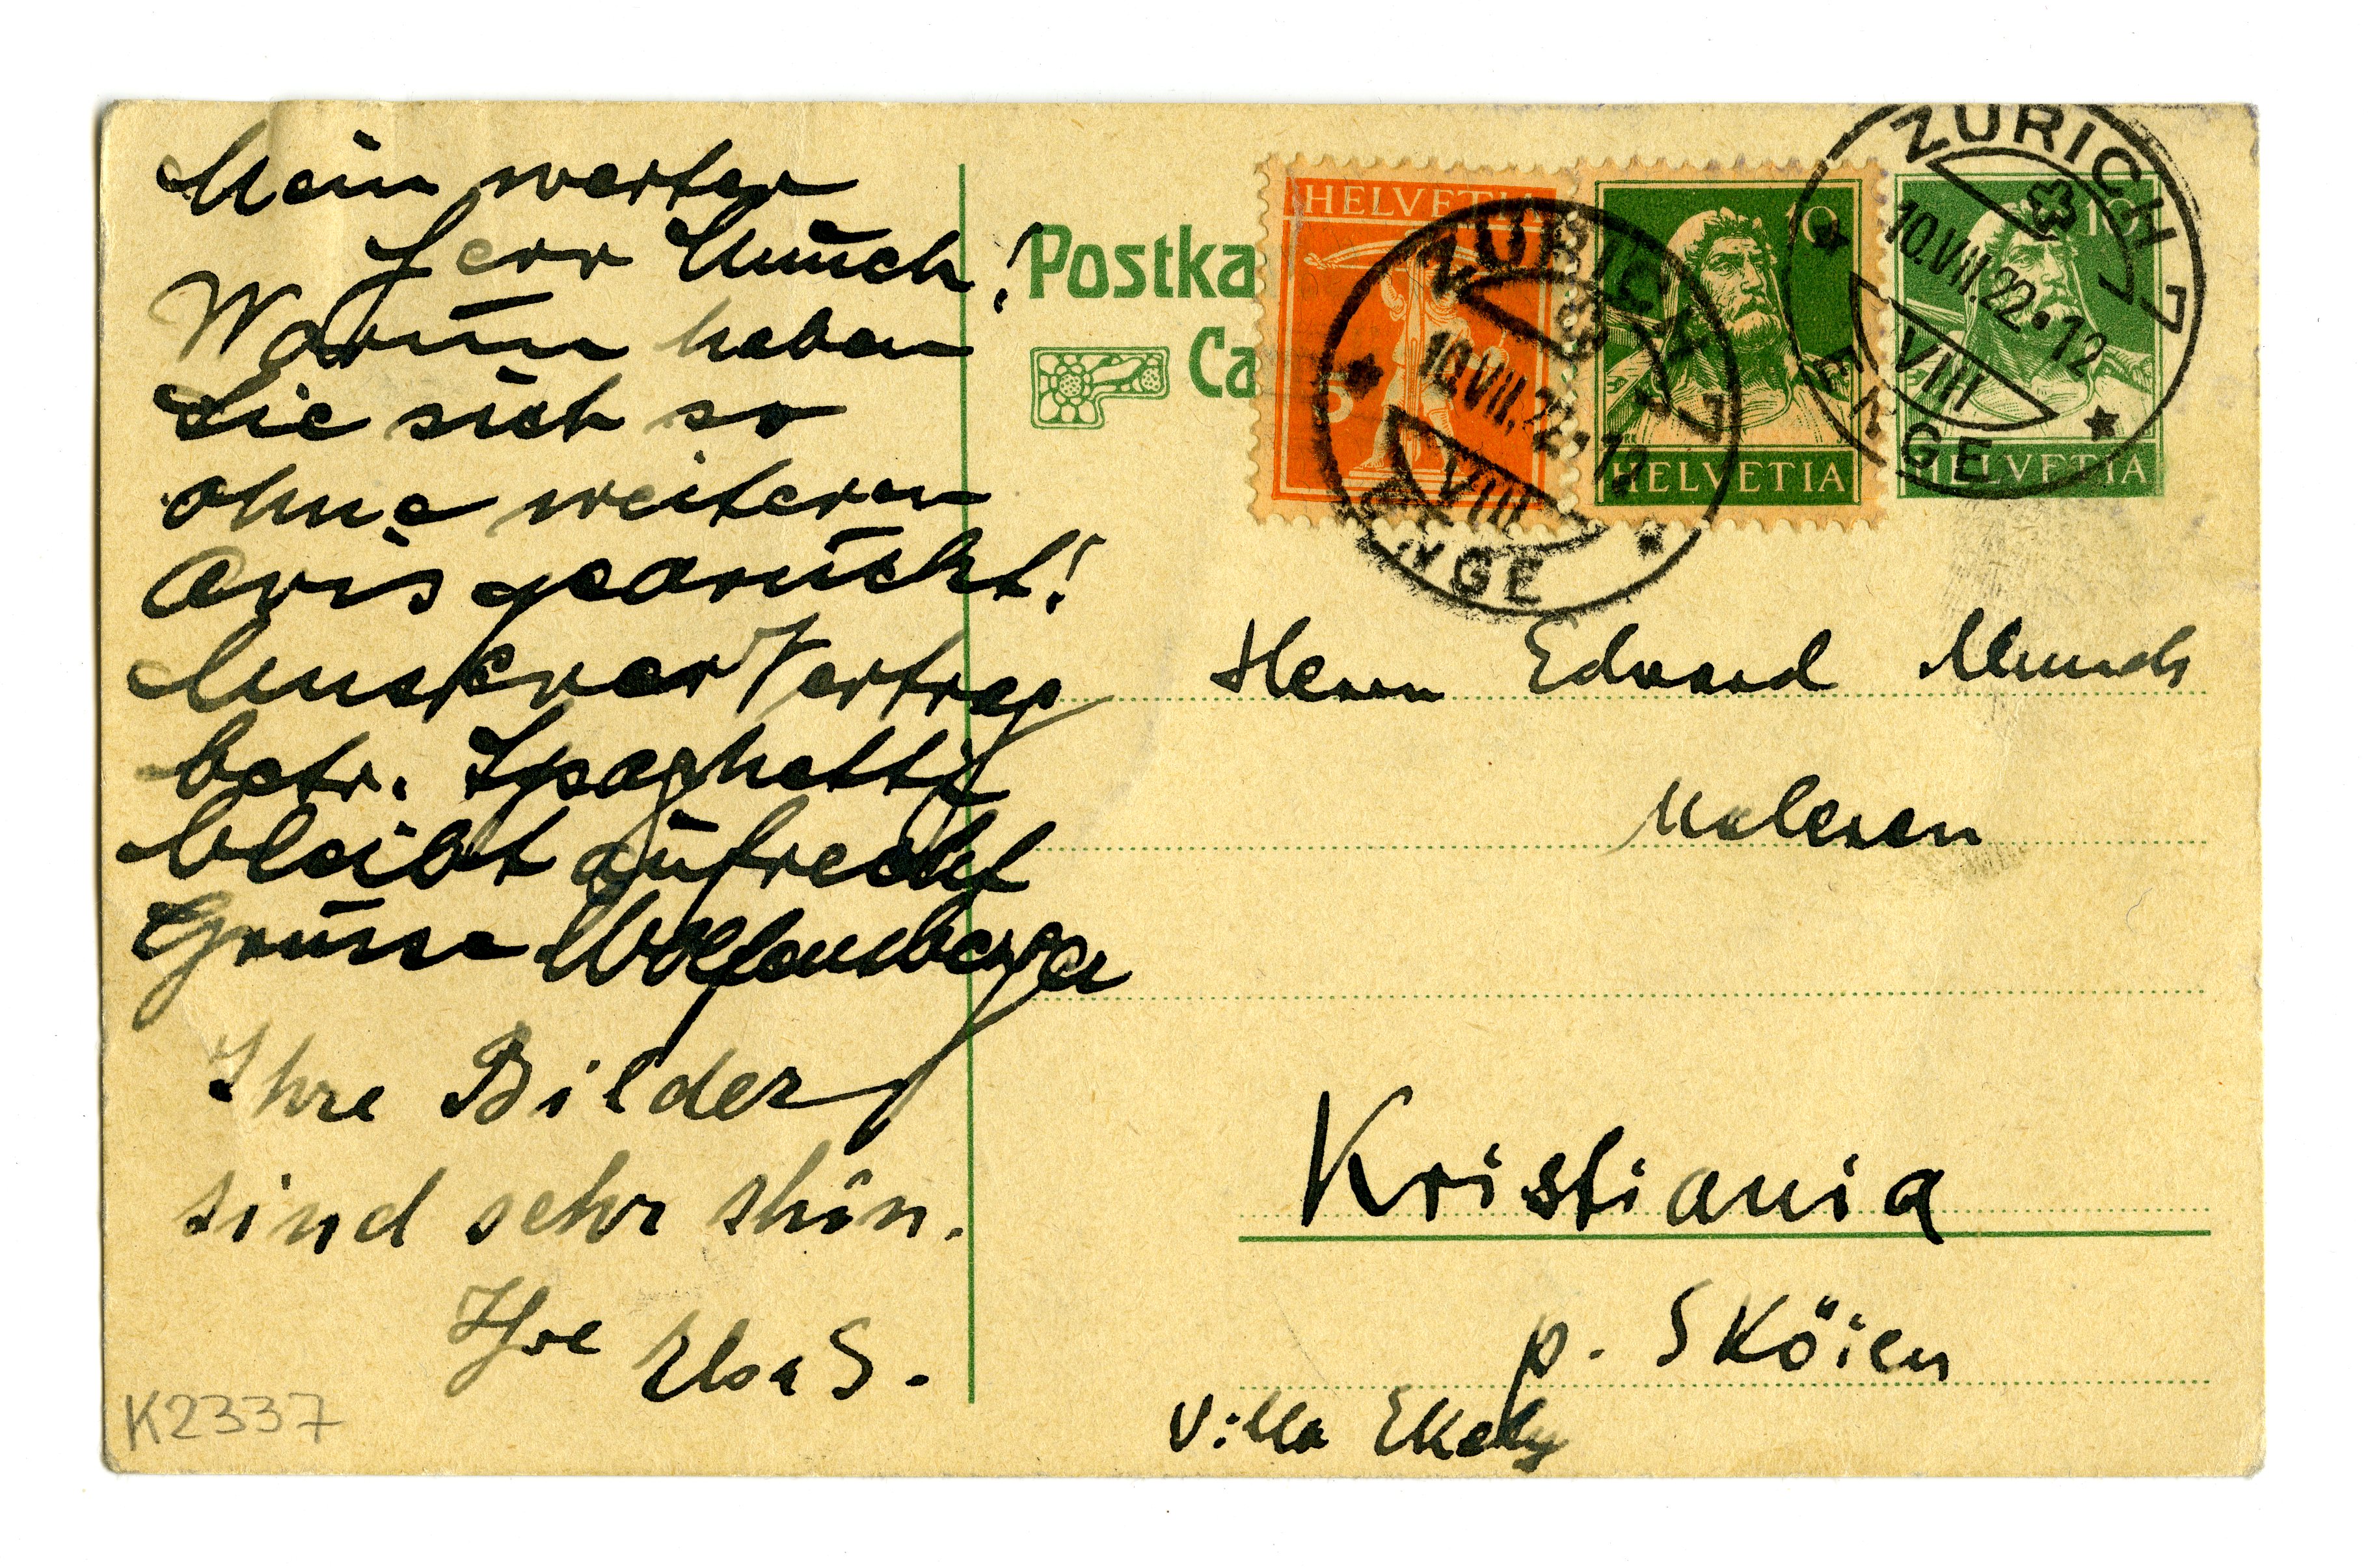 Mein werter
Herr Munch!
Warum haben
Sie sich so
ohne weiteren
Avis gedrückt!
Unserer Vertrag
betr. Spaghetti
bleibt aufrecht
Grüsse Wolfensberger
Ihre Bilder
sind sehr shön.
Ihre Elsa S.
K2337
Postka
Ca
HELVETIA
5
10
HELVETIA
10
HELVETIA
ZÜRICH 7
10.VII.22.12
VIII
ENGE
ZÜRICH 7
10.VII.22.12
VIII
ENGE
Herrn Edvard Munch
Maleren
Kristiania
p. Sköien
Villa Ekely